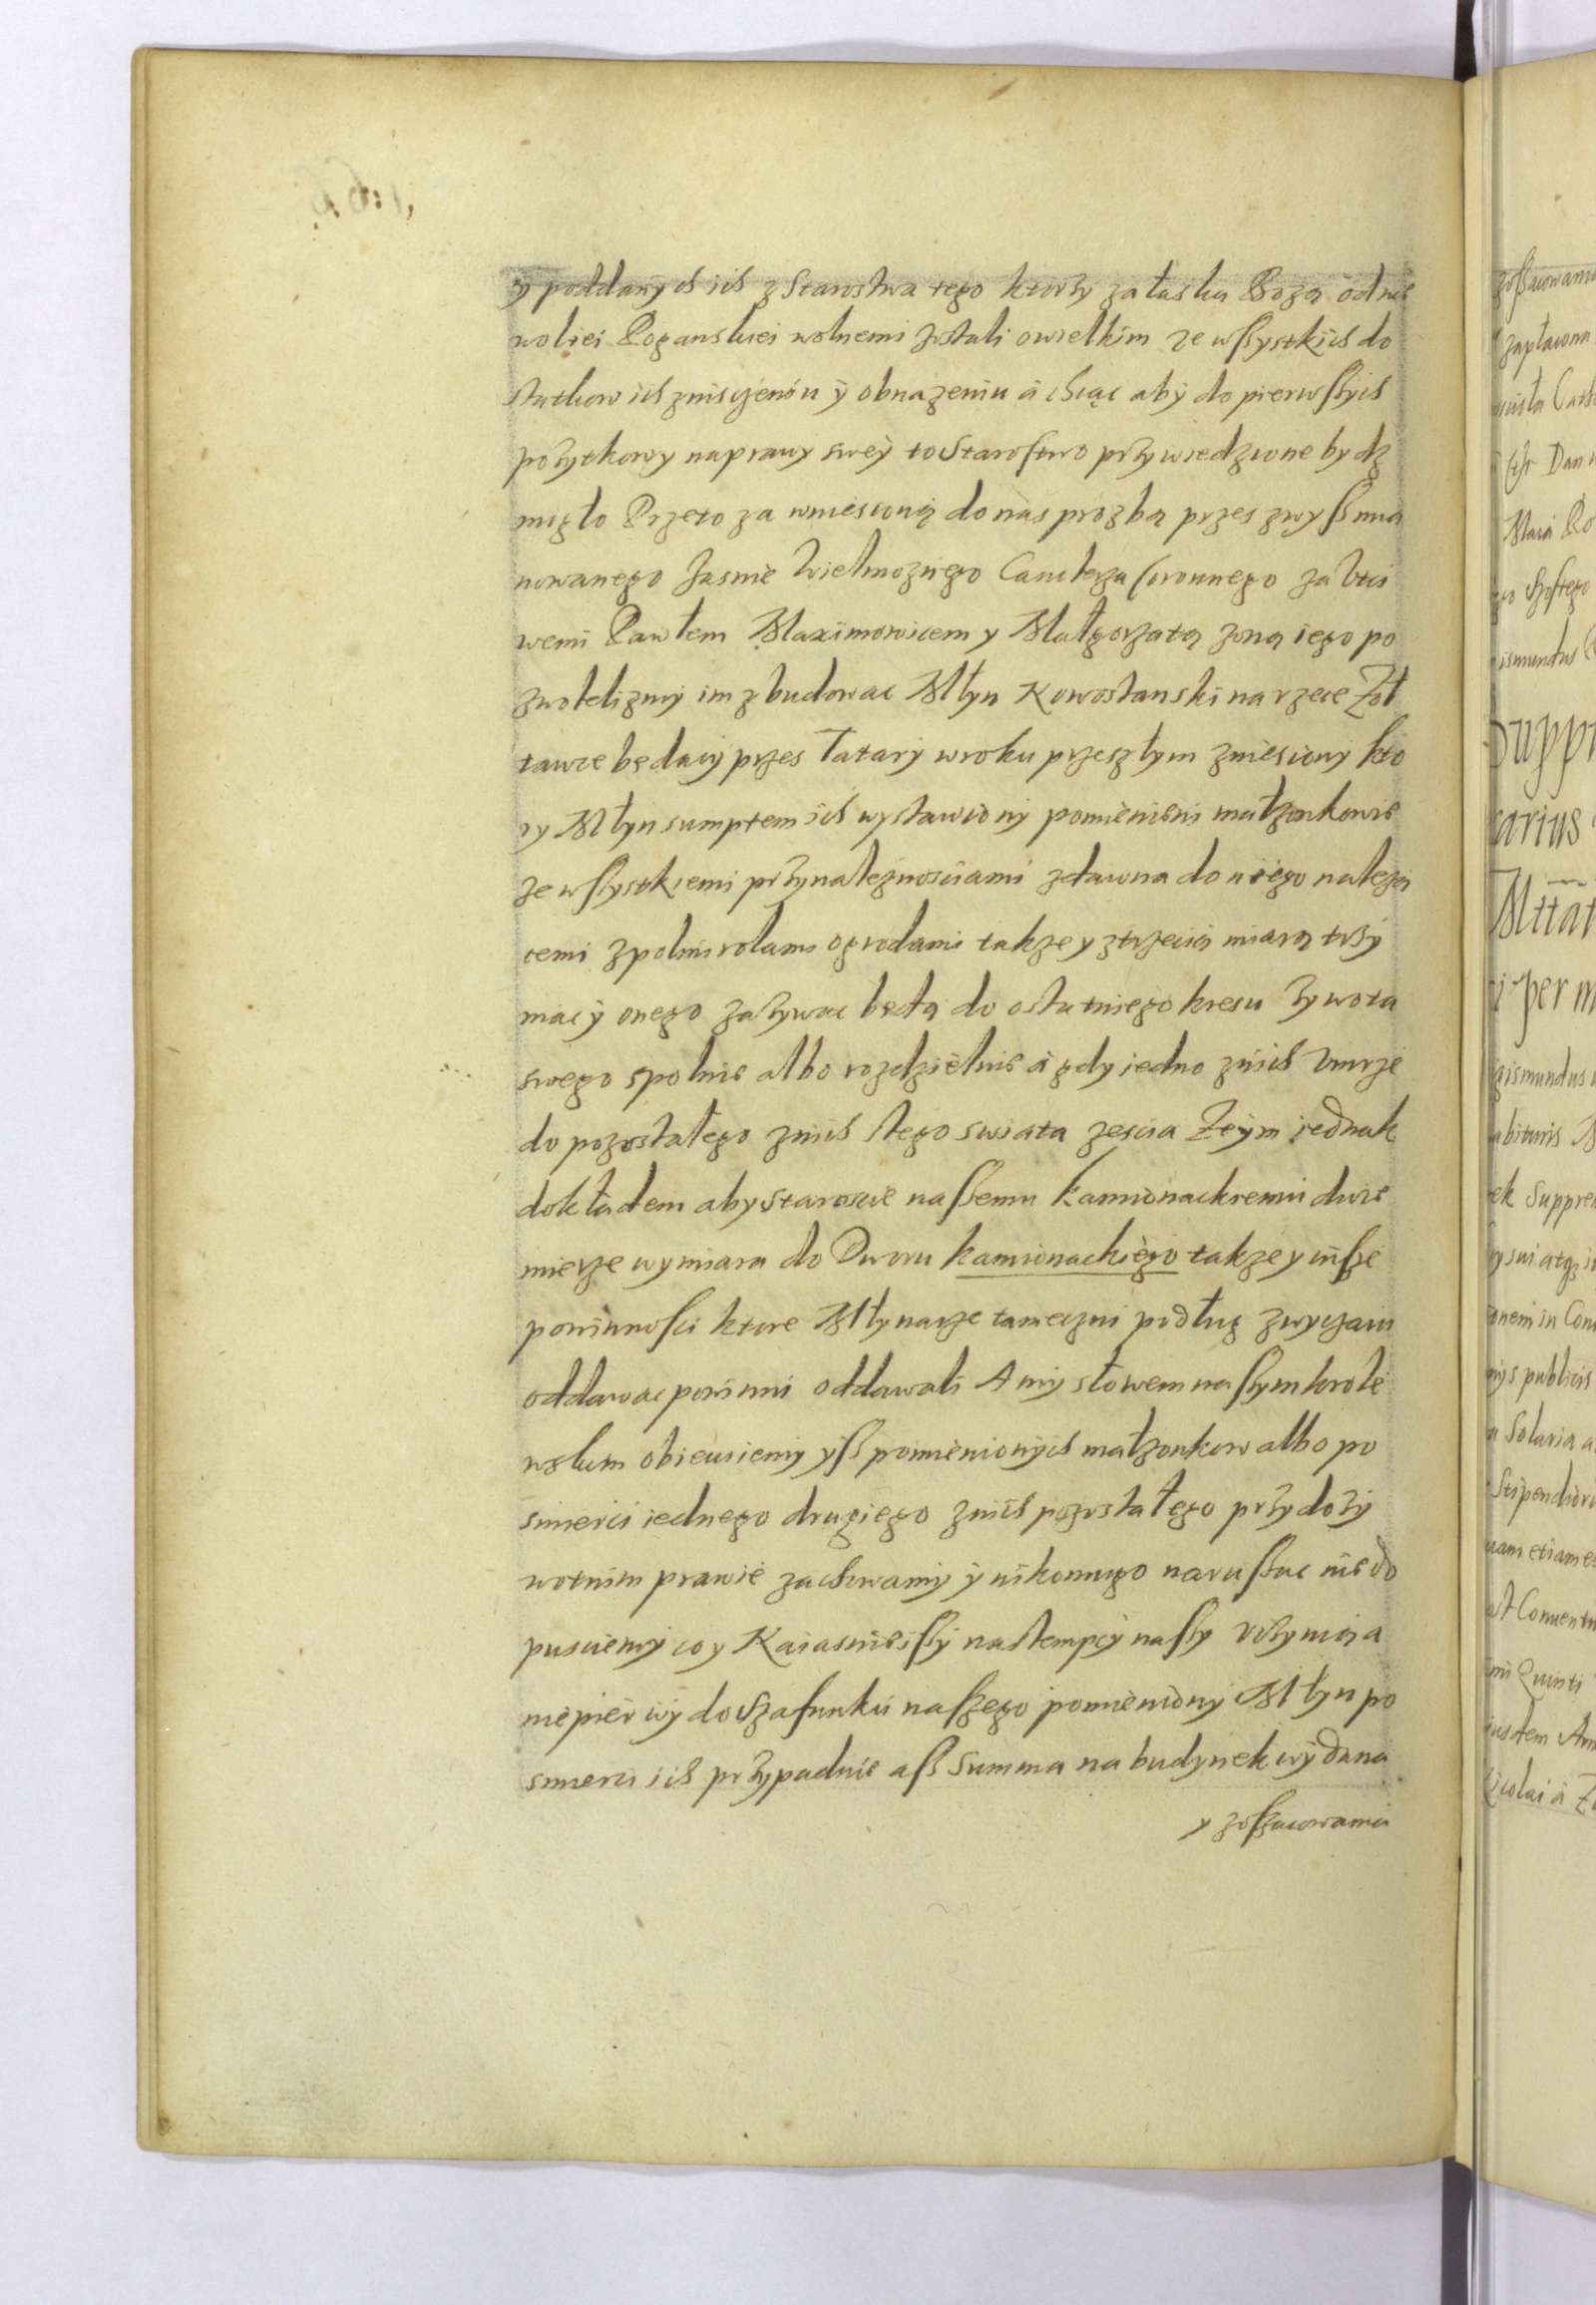 y poddanych ich z Starostwa tego ktorzy za łaską Bozą od nie
woliei Poganskiei wolnemi zostali o wielkim ze wszystkich do
statkow ich zniszczeniu y obnazeniu a chcąc aby do pierwszych
pozytkow y naprawy swey to Starostwo przywiedzione bydz
mogło Przeto za wniesioną do nas prozbą przes zwysz mia
nowanego Jasnie Wielmoznego Canclerza Coronnego za Vczi
wemi Pawłem Maximowicem y Małgorzatą zoną iego po
zwolelizmy im zbudowac Młyn Nowostanski na rzece Zoł
tawce będący przes Tatary w roku przeszłym zniesiony kto
ry Młyn sumptem ich wystawiony pomienieni małzonkowie
ze wszystkiemi przynaleznosciami zdawna do niego nalezą
cemi z polmi rolami ogrodami takze y z trzecią miarą trzy
mac y onego zazywac będą do ostatniego kresu zywota
swego spolnie albo rozdzielnie a gdy iedno z nich Vmrze
do pozostałego z nich z tego swiata zescia Z tym iednak
dokładem aby Staroscie naszemu Kamionackiemu dwie
mierze wymiaru do Dworu kamionackiego takze y insze
powinnosci ktore Młynarze tameczni podług zwyczaiu
oddawac powinni oddawali A my słowem naszym krole
wskim obiecuiemy ysz pomienionych małzonkow albo po
smierci iednego drugiego z nich pozostałego przy dozy
wotnim prawie zachwamy y nikomugo naruszac nie do
pusciemy co y Naiasnieiszy nastempcy naszy vczynią a
niepierwy do Szafunku naszego pomieniony Młyn po
smierci ich przypadnie asz Summa na budynek wydana
y zoszacowania